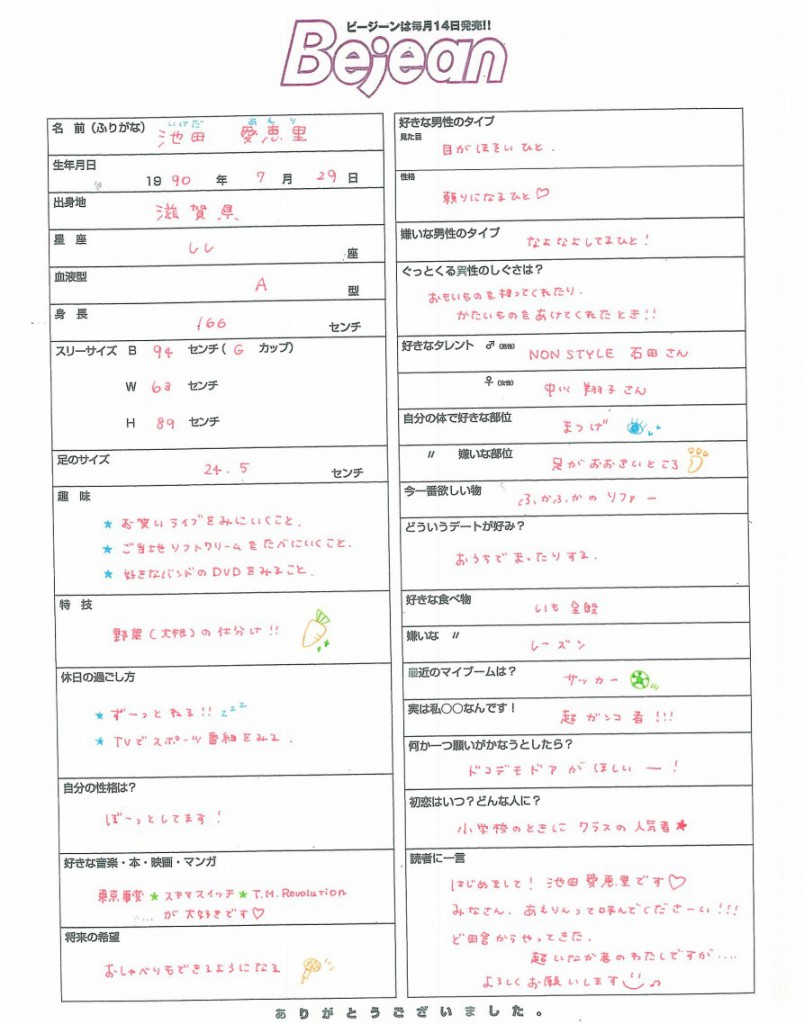 ビージーンは毎月14日発売!!
Bejean
名前(ふりがな)
いけだ あえり
池田 愛恵里
生年月日
1990年7月29日
出身地
滋賀県
星座
しし座
血液型
A型
身長
166センチ
スリーサイズ B 94センチ(Gカップ)
W 63センチ
H 89センチ
足のサイズ
24.5センチ
趣味
★お笑いライブをみにいくこと。
★ご当地ソフトクリームをたべにいくこと。
★好きなバンドのDVDをみること。
特技
野菜(大根)の仕分け!!
休日の過ごし方
★ずーっとねる!! zzz
★TVでスポーツ番組をみる。
自分の性格は?
ぼーっとしてます!
好きな音楽・本・映画・マンガ
東京事変★スキマスイッチ★T.M.Revolution
...が大好きです♡
将来の希望
おしゃべりもできるようになる
好きな男性のタイプ
見た目
目がほそいひと。
性格
頼りになるひと♡
嫌いな男性のタイプ
なよなよしてるひと!
ぐっとくる異性のしぐさは?
おもいものを持ってくれたり、
かたいものをあけてくれたとき!!
好きなタレント ♂(男性)
NON STYLE 石田さん
♀(女性)
中川翔子さん
自分の体で好きな部位
まつげ
〃 嫌いな部位
足がおおきいところ
今一番欲しい物
ふかふかのソファー
どういうデートが好み?
おうちでまったりする。
好きな食べ物
いも全般
嫌いな 〃
レーズン
最近のマイブームは?
サッカー
実は私〇〇なんです!
超ガンコ者!!!
何か一つ願いがかなうとしたら?
ドコデモドアがほしいー!
初恋はいつ?どんな人に?
小学校のときにクラスの人気者★
読者に一言
はじめまして!池田愛恵里です♡
みなさん、あえりんって呼んでくださーい!!!
ど田舎からやってきた、
超いなか者のわたしですが....
よろしくお願いします
ありがとうございました。